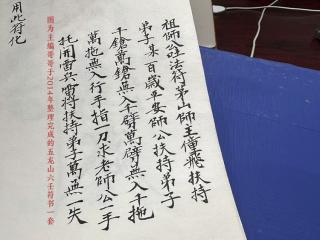 祖師法符茅山師主傳飛扶持
弟子某百歲平安師公扶持弟子
千鎗萬鎗無入千劈萬劈無入千拖
萬拖無入行手指一刀求老師公一手
托開雷兵雷將扶持弟子萬無一失
图为主编哥哥于2014年整理完成的五龙山六壬符书一套
用此符化